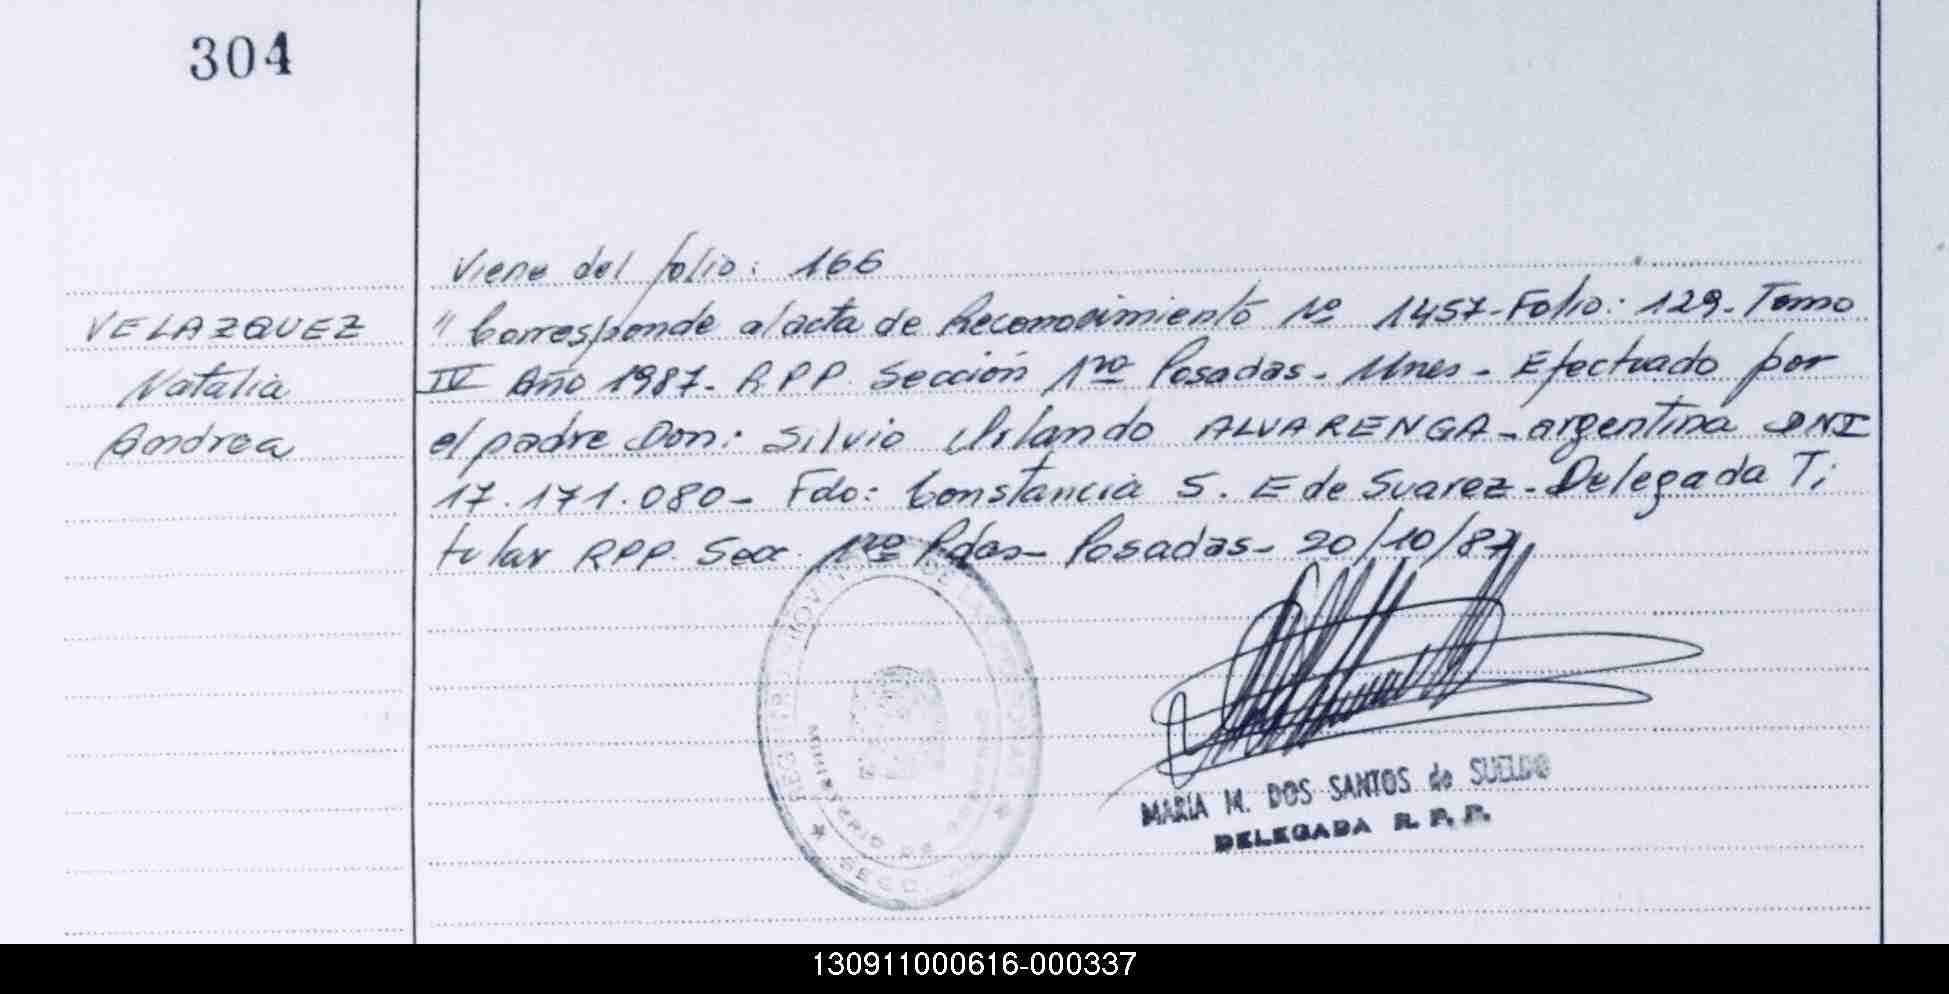 304
Viene del folio: 166
VELAZQUEZ
Natalia
Andrea
" Corresponde al acta de Reconocimiento Nº 1457-Folio: 129- Tomo
IV Año 1987- R.P.P. Sección 1ra Posadas- Mnes- Efectuado por
el padre Don: Silvio Orlando ALVARENGA- argentina DNI
17.171.080- Fdo: Constancia S. E de Suarez- Delegada Ti
tular RPP. Secc. 1ra Pdas- Posadas- 20/10/87
REGISTRO PROVINCIAL DE LAS PERSONAS
MINISTERIO DE GOBIERNO
MARIA M. DOS SANTOS de SUELDO
DELEGADA R. P. P.
130911000616-000337